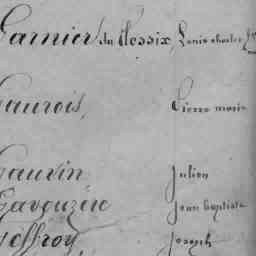 Garnier du Plessix, Louis charles
Gaurois, Pierre marie
Gauvin Julien
Gavouzère Jean baptiste
Geffroy Joseph